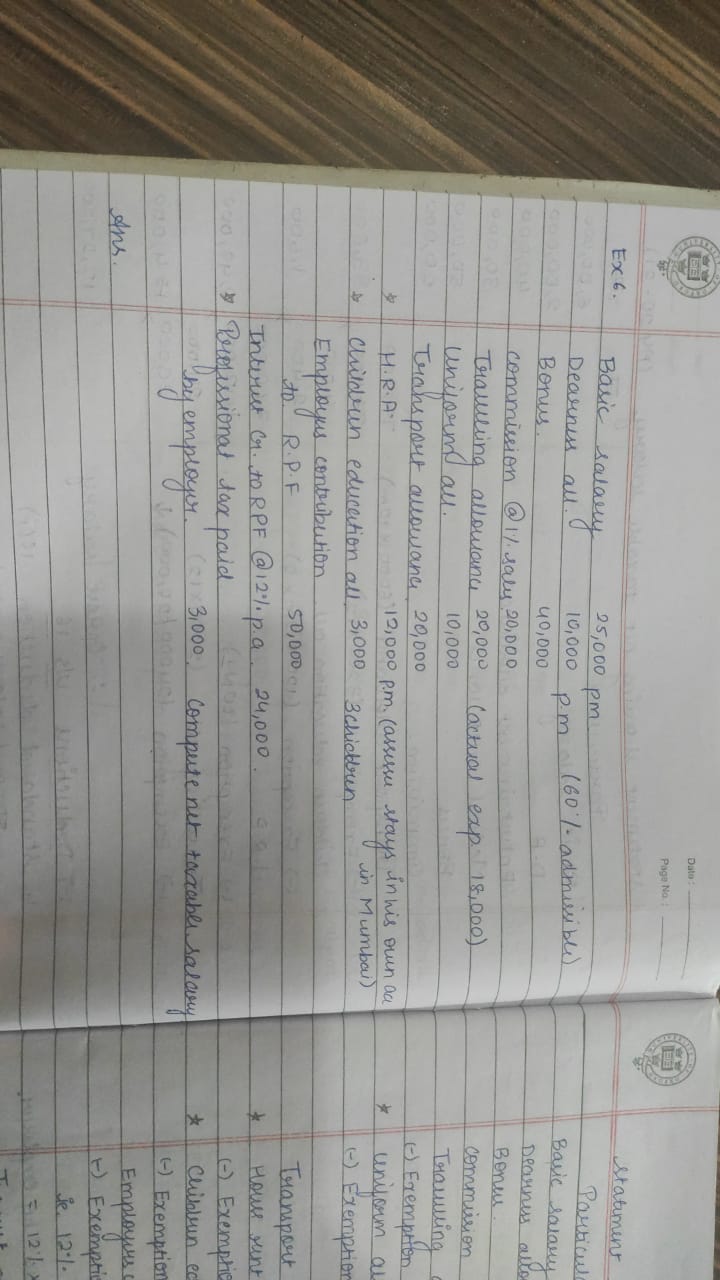 Date :
Page No. :
Ex 6. Basic salary 25,000 pm
Dearnus all. 10,000 p.m (60% admissible)
Bonus. 40,000
commission @ 1% sales 20,000
Travelling allowance 20,000 (actual exp. 18,000)
Uniform all. 10,000
Transport allowance 20,000
* H.R.A. 12,000 p.m. (assume stays in his own
in Mumbai)
* Children education all. 3,000 3 children
Employers contribution
to R.P.F 50,000
Interest Cr. to RPF @ 12% p.a. 24,000.
* Professional tax paid
by employer. 3,000. Compute net taxable salary
Ans.
Statement
Particul
Basic salary
Dearnus allo
Bonus.
Commission
Travelling
(-) Exemption
* Uniform al
(-) Exemption
Transport
* House rent
(-) Exemptio
* Children ed
(-) Exemption
Employers
(-) Exemptio
ie 12%.
= 12% x